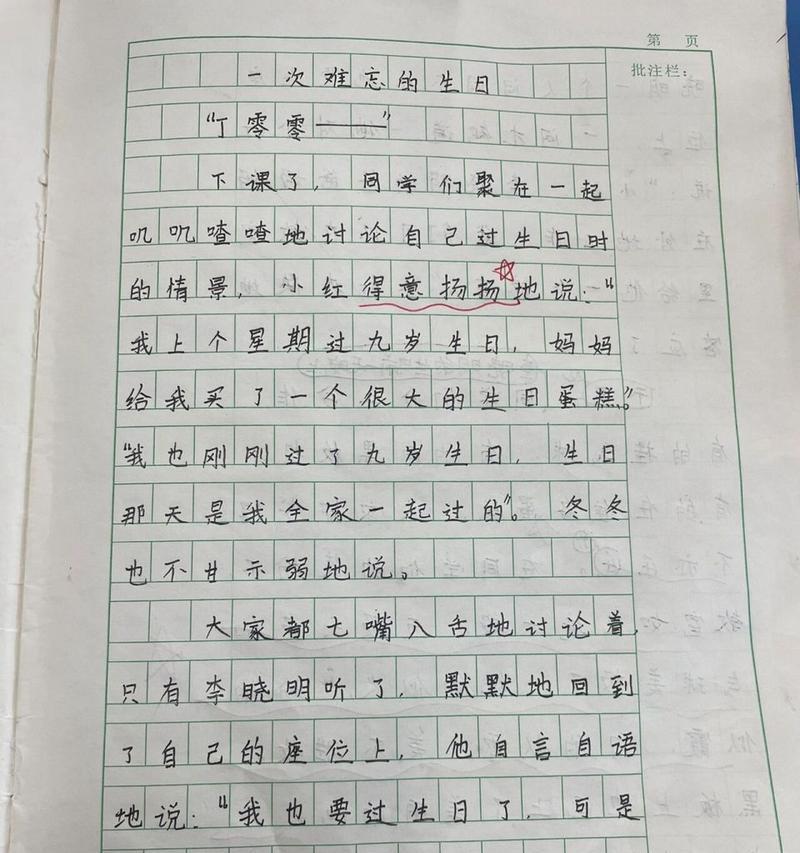 第 页
批注栏:
一次难忘的生日
“丁零零——”
下课了，同学们聚在一起
叽叽喳喳地讨论自己过生日时
的情景，小红得意扬扬地说：“
我上个星期过九岁生日，妈妈
给我买了一个很大的生日蛋糕。”
“我也刚刚过了九岁生日，生日
那天是我全家一起过的”。冬冬
也不甘示弱地说。
大家都七嘴八舌地讨论着，
只有李晓明听了，默默地回到
了自己的座位上，他自言自语
地说：“我也要过生日了，可是